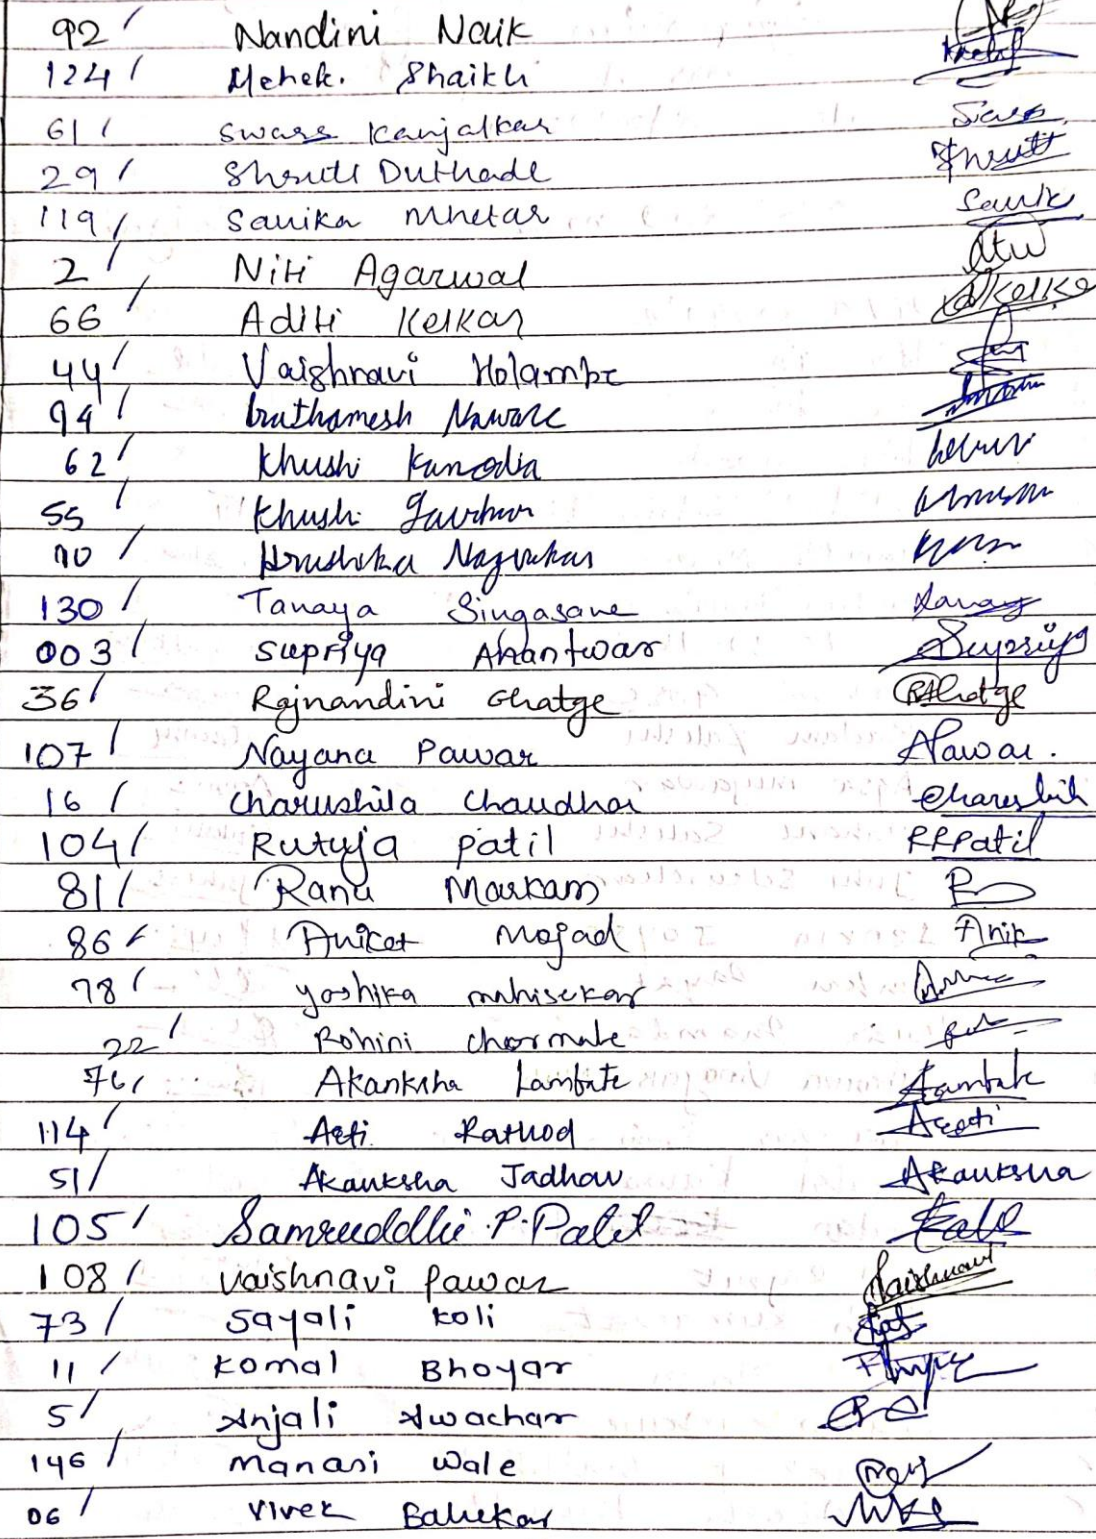 92 / Nandini Naik
124 / Mehek. Shaikh
61 / Swara Kanjalkar
29 / Shruti Duthade Shrutt
119 / Sanika Mhetar Sanik
2 / Niti Agarwal
66 / Aditi Kelkar AKelka
44 / Vaishnavi Holambe
94 / Pruthamesh Naware
62 / Khushi Kanodia
55 / Khushi
90 / Hrushika Nagvekar
130 / Tanaya Singasane Tanay
003 / Supriya Anantwar Supriya
36 / Rajnandini Ghatge RAGhatge
107 / Nayana Pawar NPawar.
16 / Charushila Chaudhari
104 / Rutuja Patil RRPatil
81 / Ranu Markam
86 / Aniket Mojad Anik
78 / Yashika Mahisekar
22 / Rohini Chormale
76 / Akanksha Lambate Lambate
114 / Arti Rathod Aarti
51 / Akanksha Jadhav Akanksha
105 / Samruddhi P. Patil
108 / Vaishnavi Pawar Vaishnavi
73 / Sayali Koli
11 / Komal Bhoyar
5 / Anjali Awachar
146 / Manasi Wale
06 / Vivek Bahekar